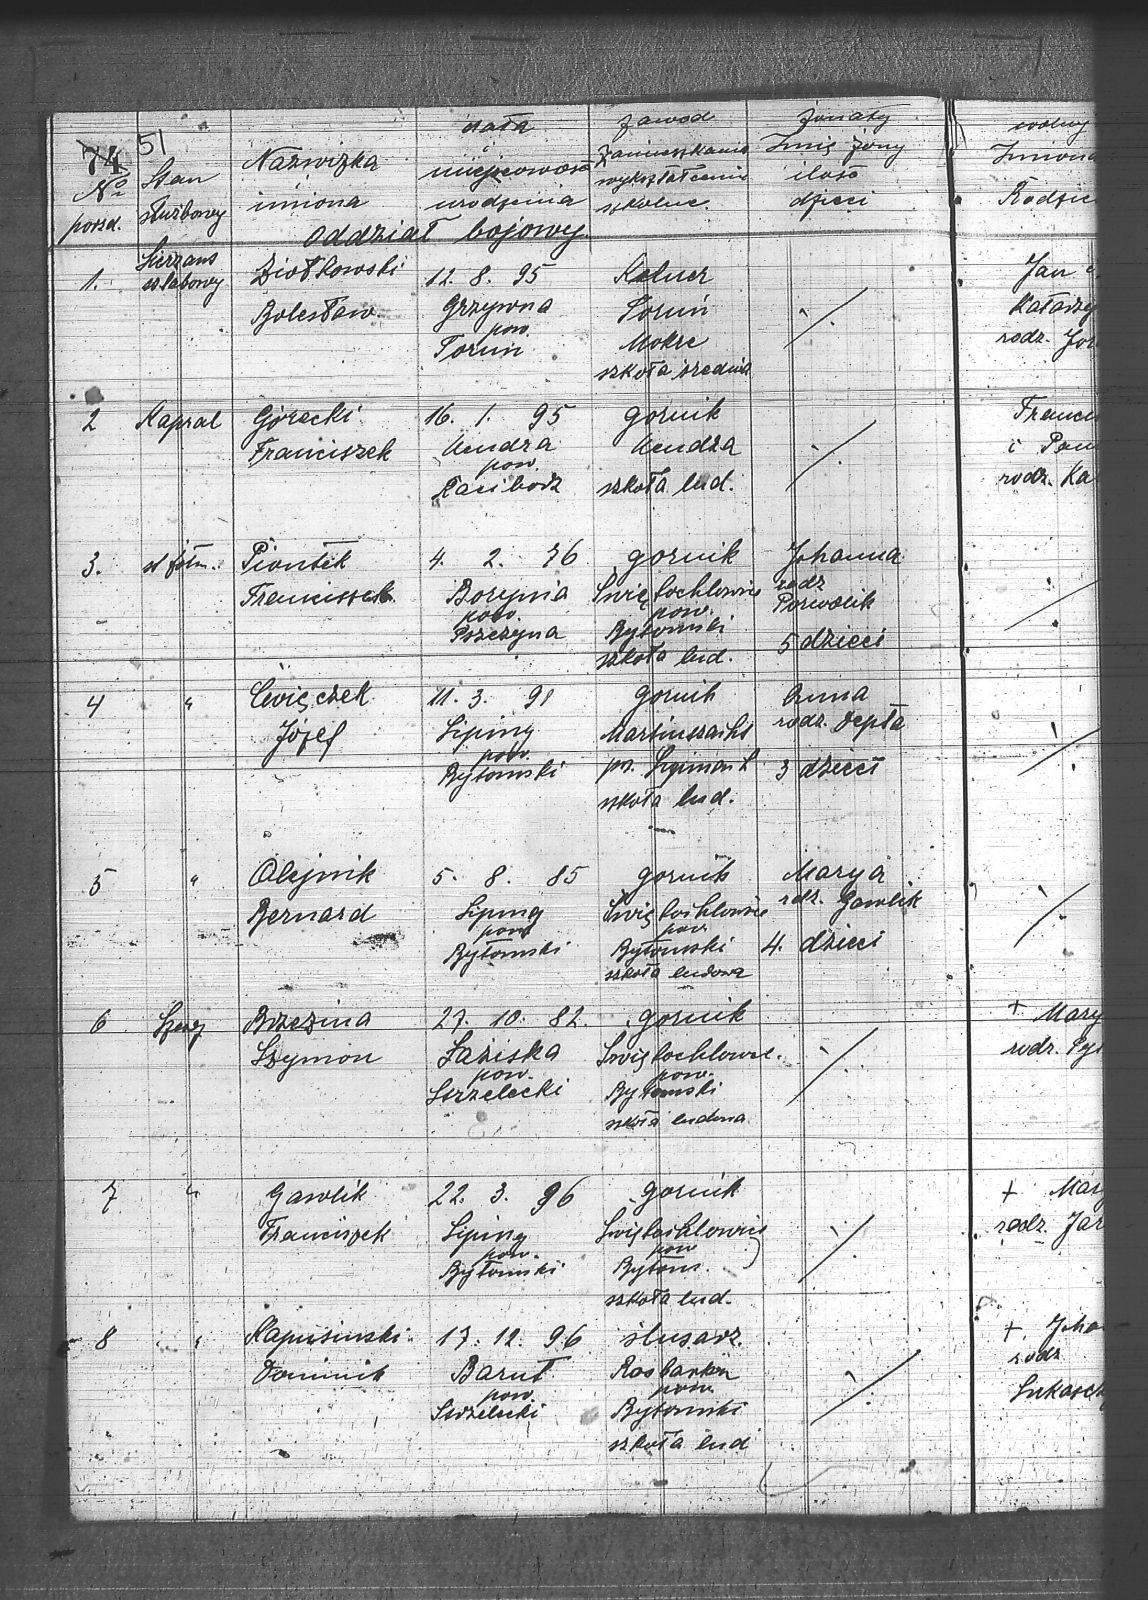 74 51
No porzd.
Stan służbowy
Nazwizka imiona
data i miejscowość urodzenia
zawod zamieszkanie wykształcenie szkolne
żonaty Imię żony ilość dzieci
wolny Imiona Rodzic
oddział bojowy.
1. Sierzant sztabowy
Ziołkowski
Bolesław.
12. 8. 95
Grzywna
pow.
Toruń
Kelner
Toruń
Mokre
szkoła średnia
Jan
Katarzy
rodz.
2 Kapral
Górecki
Franciszek
16. 1. 95
Kendza
pow.
Racibodz
gornik
Kendza
szkoła lud.
Franci
i
rodz. Ka
3. st żołn.
Piontek
Franciszek
4. 2. 76
Borynia
pow.
Pszczyna
gornik
Święlochlowice
pow.
Bytomski
szkoła lud.
Johanna
rodz
Porwolik
5 dzieci
4 "
Cwięczek
Józef
11. 3. 91
Liping
pow.
Bytomski
gornik
szkoła lud.
Anna
rodz. Depta
3 dzieci
5 "
Olejnik
Bernard
5. 8. 85
Liping
pow
Bytomski
gornik
Święlochlowice
pow.
Bytomski
szkoła ludowa
Marya
rdz. Gawlik
4. dzieci
6 Szerg
Brzezina
Szymon
27. 10. 82.
Łaziska
pow.
Strzelecki
gornik
Święlochlowic.
pow.
Bytomski
szkoła ludowa
+ Mary
rodz.
7 "
Gawlik
Franciszek
22. 3. 96
Liping
pow.
Bytomski
gornik
Święlochlowice
pow
Bytoms.
szkoła lud.
+ Mary
rodz. Jar
8 "
Kapusinski.
Dominik
17. 12. 96
Barut
pow.
Strzelecki
slusarz.
Rosbarken
pow.
Bytomski
szkoła lud
+ Joha
rodz
Lukasch